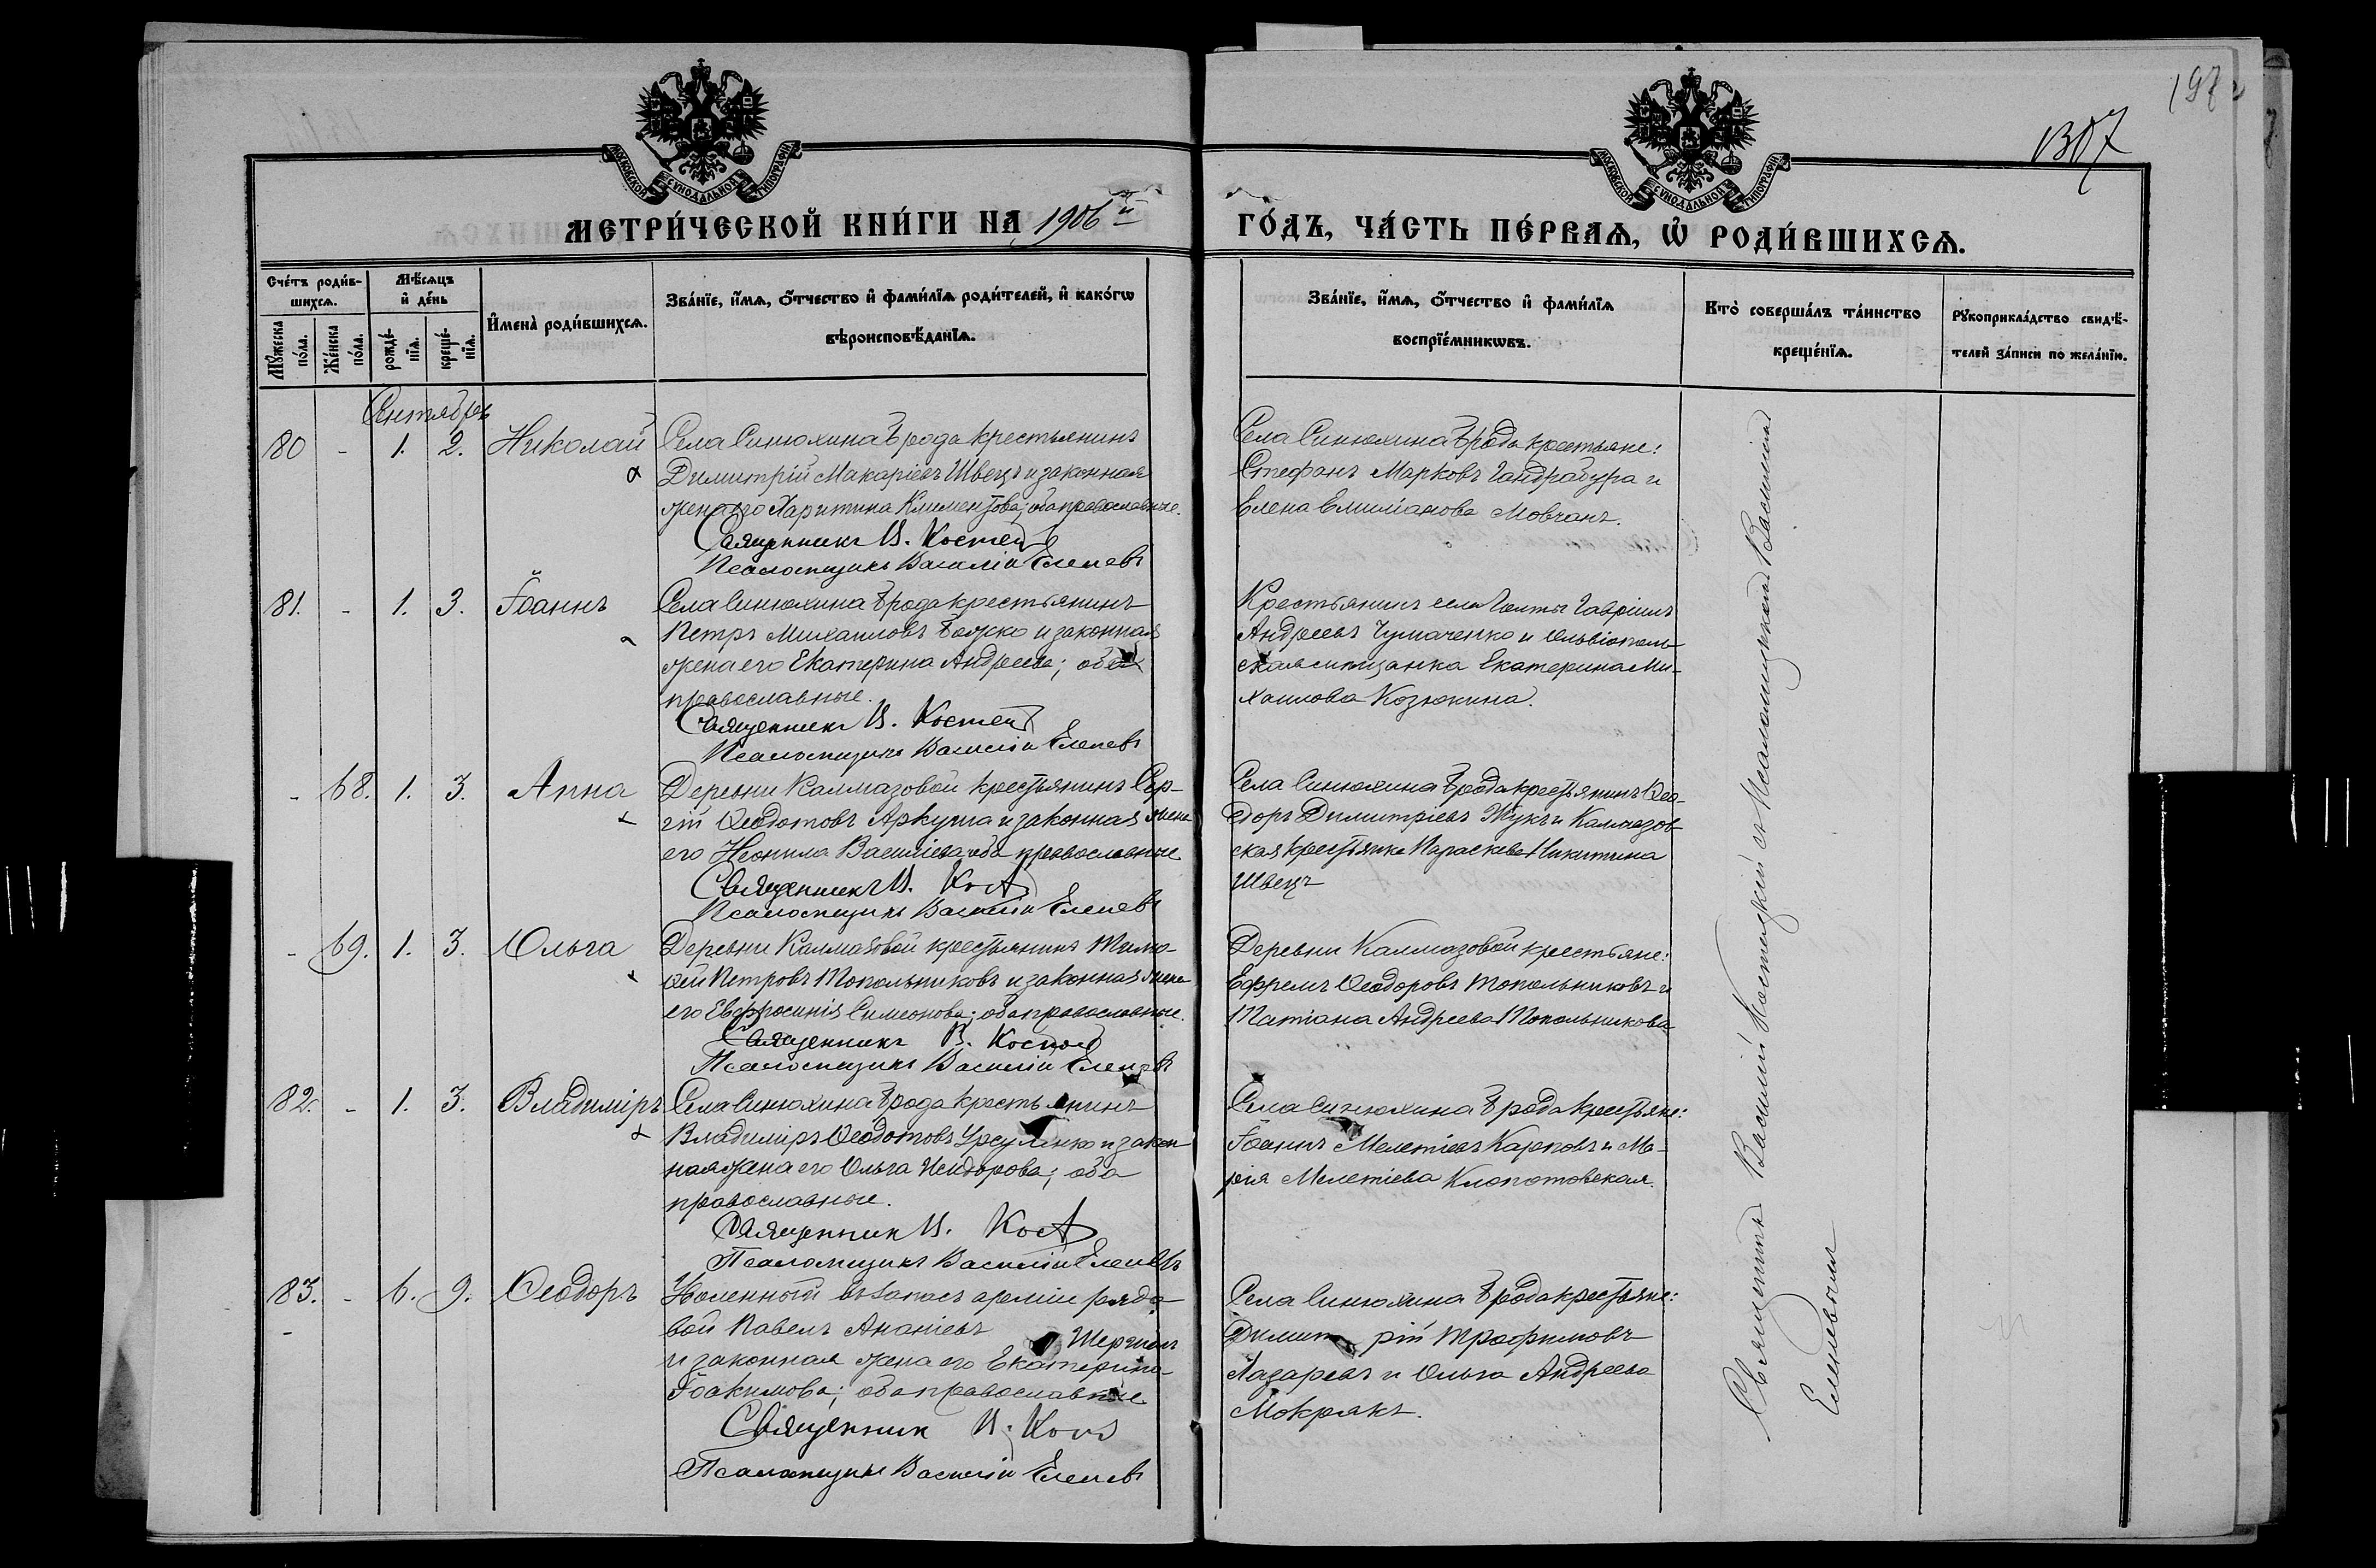 197
1307
МОСКОВСКОЙ СѴНОДАЛЬНОЙ ТИПОГРАФІИ
МОСКОВСКОЙ СѴНОДАЛЬНОЙ ТИПОГРАФІИ
МЕТРИ́ЧЕСКОЙ КНИ́ГИ НА 1906й
ГО́ДЪ, ЧА́СТЬ ПЕ́РВАѦ, Ѽ РОДИ́ВШИХСѦ.
Сче́тъ роди́в-
шихсѧ.
Мꙋ́жеска
по́ла.
Же́нска
по́ла.
Мѣ́сѧцъ
и҆ де́нь
рожде́-
нїѧ.
креще́-
нїѧ.
И҆мена̀ роди́вшихсѧ.
Зва́нїе, и҆́мѧ, ѻ҆́тчество и҆ фами́лїѧ роди́телей, и҆ како́гѡ
вѣроисповѣ́данїѧ.
Зва́нїе, и҆́мѧ, ѻ҆́тчество и҆ фами́лїѧ
воспрїе́мникѡвъ.
Кто̀ соверша́лъ та́инство
креще́нїѧ.
Рꙋкоприкла́дство свидѣ́-
телей за́писи по жела́нїю.
Сентябрь
80 - 1. 2. Николай
Села Синюхина Брода крестьянинъ
Димитрій Макаріевъ Швецъ и законная
жена его Харитина Климентова; оба православные.
Священникъ В.
Псаломщикъ Василій Еленевъ
Села Синюхина Брода крестьяне:
Стефанъ Марковъ Гандрабура и
Елена Емиліанова Мовчанъ.
81. - 1. 3. Іоаннъ
Села Синюхина Брода крестьянинъ
Петръ Михаиловъ Божко и законная
жена его Екатерина Андреева; оба
православные.
Священникъ В.
Псаломщикъ Василій Еленевъ
Крестьянинъ села Голты Гавріилъ
Андреевъ Чумаченко и Ольвіополь-
ская мещанка Екатерина Ми-
хаилова Козюкина.
- 68. 1. 3. Анна
Деревни Калмазовой крестьянинъ Сер-
гій Ѳеодотовъ Аркуша и законная жена
его Неонила Василіева; оба православные
Священникъ В.
Псаломщикъ Василій Еленевъ
Села Синюхина Брода крестьянинъ Ѳео-
доръ Димитріевъ Жукъ и Калмазов-
ская крестьянка Параскева Никитина
Швецъ
- 69. 1. 3. Ольга
Деревни Калмазовой крестьянинъ Тимо-
ѳей Петровъ Топольниковъ и законная жена
его Евфросинія Симеонова; оба православные.
Священникъ В.
Псаломщикъ Василій Еленевъ
Деревни Калмазовой крестьяне:
Ефремъ Ѳеодоровъ Топольниковъ и
Татіана Андреева Топольникова
82. - 1. 3. Владиміръ
Села Синюхина Брода крестьянинъ
Владиміръ Ѳеодотовъ Урсуленко и закон-
ная жена его Ольга Исидорова; оба
православные.
Священникъ В.
Псаломщикъ Василій Еленевъ
Села Синюхина Брода крестьяне:
Іоаннъ Мелетіевъ Карповъ и Ма-
рія Мелетіева Клопотовская.
83. - 6. 9. Ѳеодоръ
Уволенный въ запасъ арміи рядо-
вой Павелъ Ананіевъ
и законная жена его Екатерина
Іоакимова; оба православные
Священникъ В.
Псаломщикъ Василій Еленевъ
Села Синюхина Брода крестьяне:
Димитрій Трофимовъ
Лазаревъ и Ольга Андреева
Мокрякъ.
Священникъ Василій Костецкій съ Псаломщикомъ Василіемъ
Еленевымъ